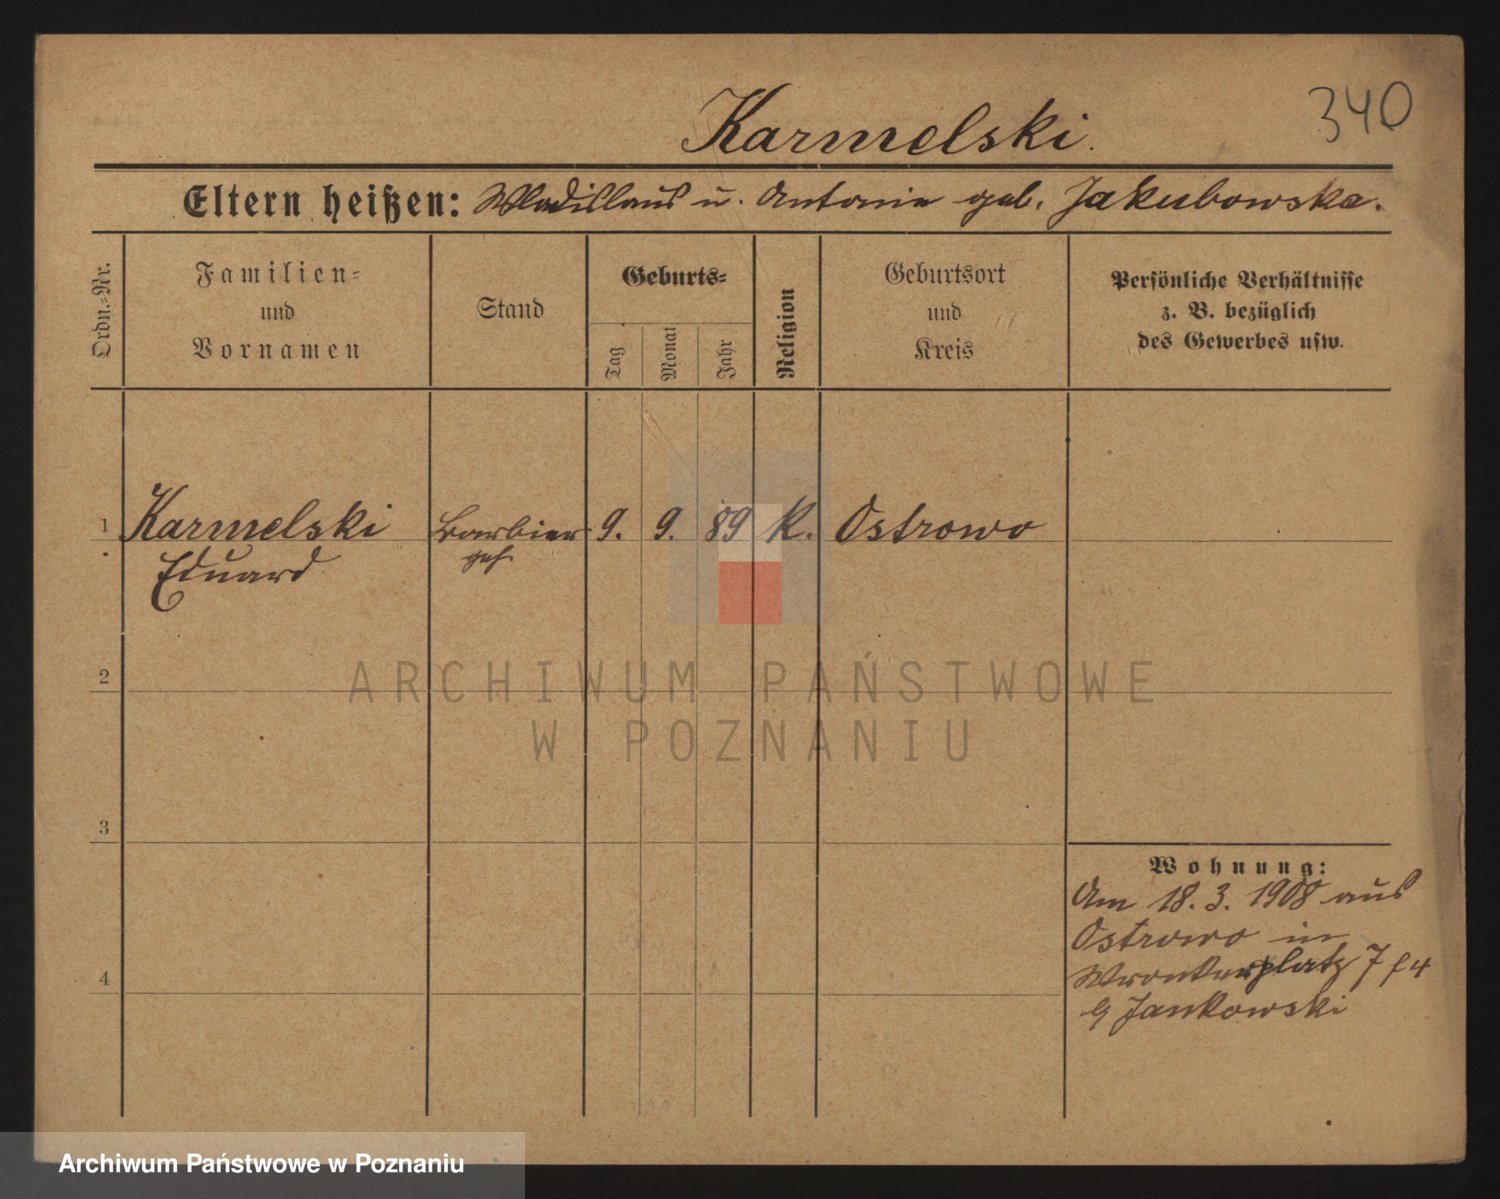 340
Karmelski.
Eltern heißen: Wladislaus u. Antonie geb. Jakubowska.
Ordn.-Nr.
Familien-
und
Vornamen
Stand
Geburts-
Tag
Monat
Jahr
Religion
Geburtsort
und
Kreis
Persönliche Verhältnisse
z. B. bezüglich
des Gewerbes usw.
1 Karmelski Barbier 9. 9. 89 K. Ostrowo
Eduard geh.
2
3
4
Wohnung:
Am 18. 3. 1908 aus
Ostrowo in
Wronkerplatz 7
Jankowski
ARCHIWUM PAŃSTWOWE
W POZNANIU
Archiwum Państwowe w Poznaniu